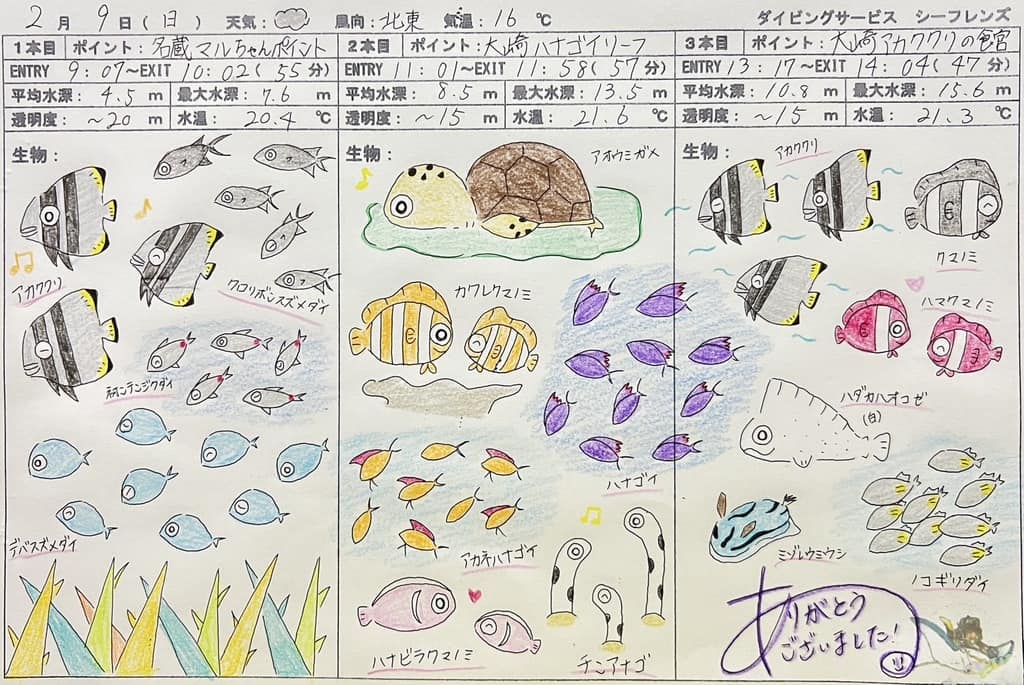 2月 9日(日) 天気: 風向:北東 気温:16℃ ダイビングサービス シーフレンズ
1本目 ポイント:名蔵マルちゃんポイント
ENTRY 9:07~EXIT 10:02(55分)
平均水深:4.5m 最大水深:7.6m
透明度:~20m 水温:20.4℃
生物:
アカククリ
クロリボンスズメダイ
デバスズメダイ
2本目 ポイント:大崎ハナゴイリーフ
ENTRY 11:01~EXIT 11:58(57分)
平均水深:8.5m 最大水深:13.5m
透明度:~15m 水温:21.6℃
生物:
アオウミガメ
カクレクマノミ
ハナゴイ
アカネハナゴイ
ハナビラクマノミ
チンアナゴ
3本目 ポイント:大崎アカククリの宮
ENTRY 13:17~EXIT 14:04(47分)
平均水深:10.8m 最大水深:15.6m
透明度:~15m 水温:21.3℃
生物:
アカククリ
クマノミ
ハマクマノミ
ハダカハオコゼ
(白)
ミゾレウミウシ
ノコギリダイ
ありがとう
ございました!